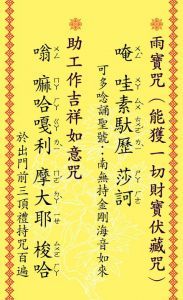 雨寶咒（能獲一切財寶伏藏咒）
唵 哇素馱歷 莎訶
可多唸誦聖號：南無持金剛海音如來
助工作吉祥如意咒
嗡 嘛哈嘎利 摩大耶 梭哈
於出門前三頂禮持咒百遍